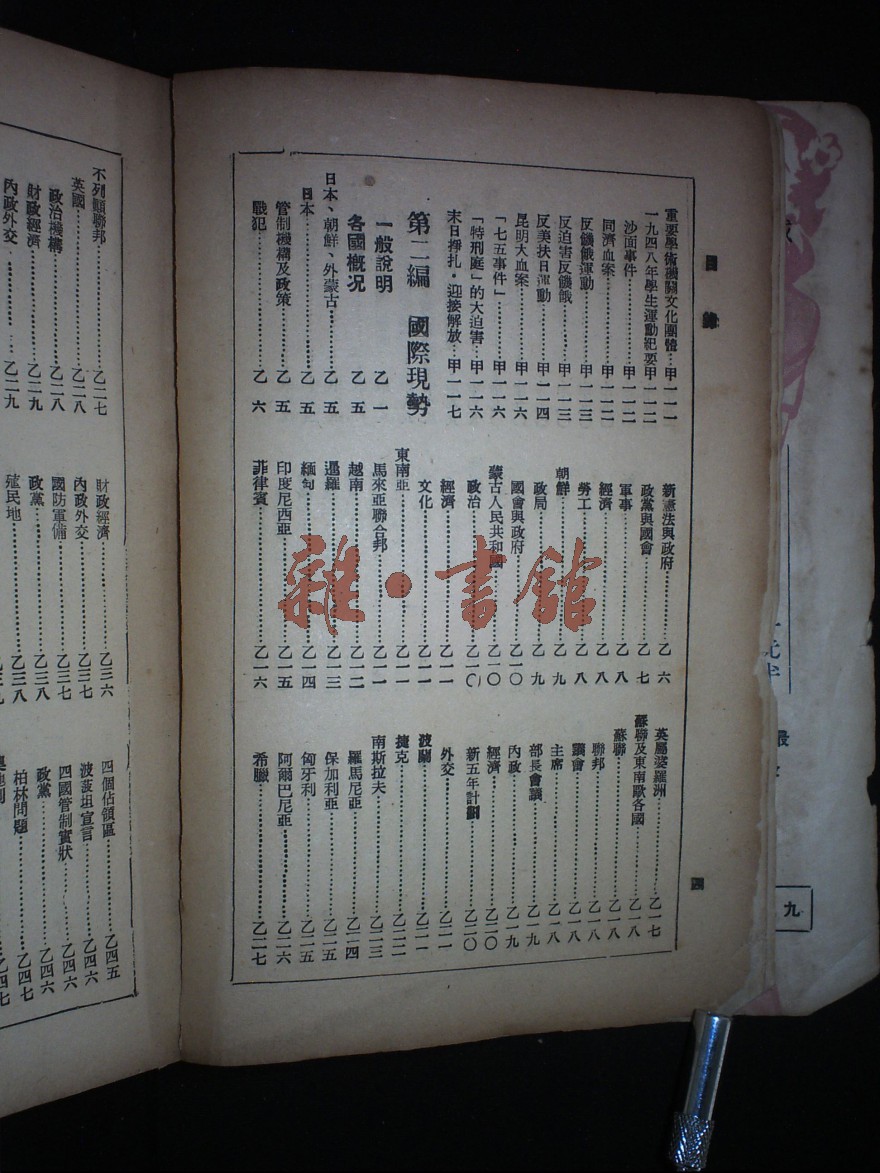 目錄
重要學術機關文化團體…甲一一一
一九四八年學生運動紀要甲一一二
沙面事件…甲一一二
同濟血案…甲一一二
反饑餓運動…甲一一三
反迫害反饑餓…甲一一三
反美扶日運動…甲一一四
昆明大血案…甲一一六
「七五事件」…甲一一六
「特刑庭」的大迫害…甲一一六
末日掙扎·迎接解放…甲一一七
第二編 國際現勢
一般說明 乙一
各國概況 乙五
日本、朝鮮、外蒙古…乙五
日本…乙五
管制機構及政策…乙五
戰犯…乙六
新憲法與政府…乙六
政黨與國會…乙七
軍事…乙八
經濟…乙八
勞工…乙八
朝鮮…乙九
政局…乙九
國會與政府…乙一〇
蒙古人民共和國…乙一〇
政治…乙一〇
經濟…乙一一
文化…乙一一
東南亞…乙一一
馬來亞聯合邦…乙一一
越南…乙一二
暹羅…乙一三
緬甸…乙一四
印度尼西亞…乙一五
菲律賓…乙一六
英屬婆羅洲…乙一七
蘇聯及東南歐各國…乙一八
蘇聯…乙一八
聯邦…乙一八
議會…乙一八
主席…乙一八
部長會議…乙一九
內政…乙一九
經濟…乙二〇
新五年計劃…乙二〇
外交…乙二一
波蘭…乙二一
捷克…乙二二
南斯拉夫…乙二三
羅馬尼亞…乙二四
保加利亞…乙二五
匈牙利…乙二五
阿爾巴尼亞…乙二六
希臘…乙二七
四
不列顛聯邦…乙二七
英國…乙二八
政治機構…乙二八
財政經濟…乙二九
內政外交…乙二九
財政經濟…乙三六
內政外交…乙三七
國防軍備…乙三七
政黨…乙三八
殖民地…乙三八
四個佔領區…乙四五
波茨坦宣言…乙四六
四國管制實狀…乙四六
政黨…乙四六
柏林問題…乙四七
九
雜·書館